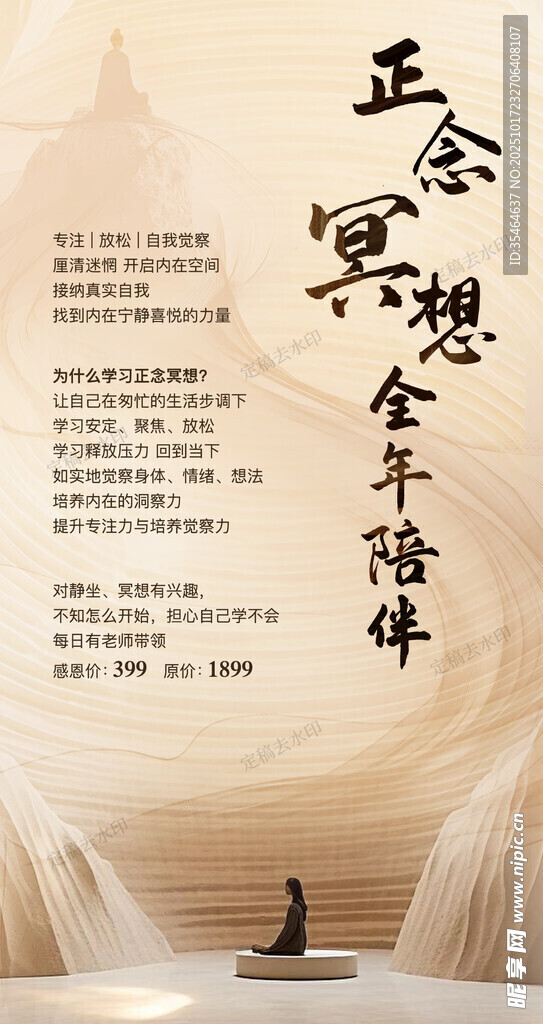 正念
冥想
全年陪伴
专注 | 放松 | 自我觉察
厘清迷惘 开启内在空间
接纳真实自我
找到内在宁静喜悦的力量
为什么学习正念冥想?
让自己在匆忙的生活步调下
学习安定、聚焦、放松
学习释放压力 回到当下
如实地觉察身体、情绪、想法
培养内在的洞察力
提升专注力与培养觉察力
对静坐、冥想有兴趣，
不知怎么开始，担心自己学不会
每日有老师带领
感恩价: 399 原价: 1899
ID:35464637 NO:20251017232706408107
定稿去水印
定稿去水印
定稿去水印
定稿去水印
定稿去水印
定稿去水印
昵享网 www.nipic.cn